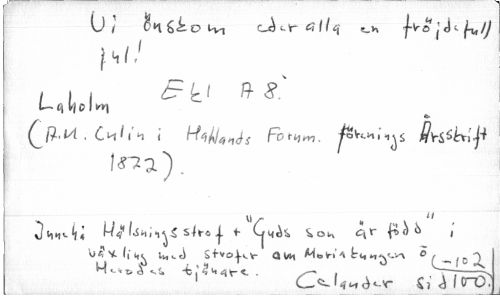 Vi önskom eder alla en fröjdefull
jul!
Ekl A 8.
Laholm
(A.M. Culin i Hallands Fornm. förenings Årsskrift
1872).
Inneh. Hälsningsstrof + "Guds son är född" i
växling med strofer om Moriakungen o
Herodes tjänare.
Celander sid 100-102